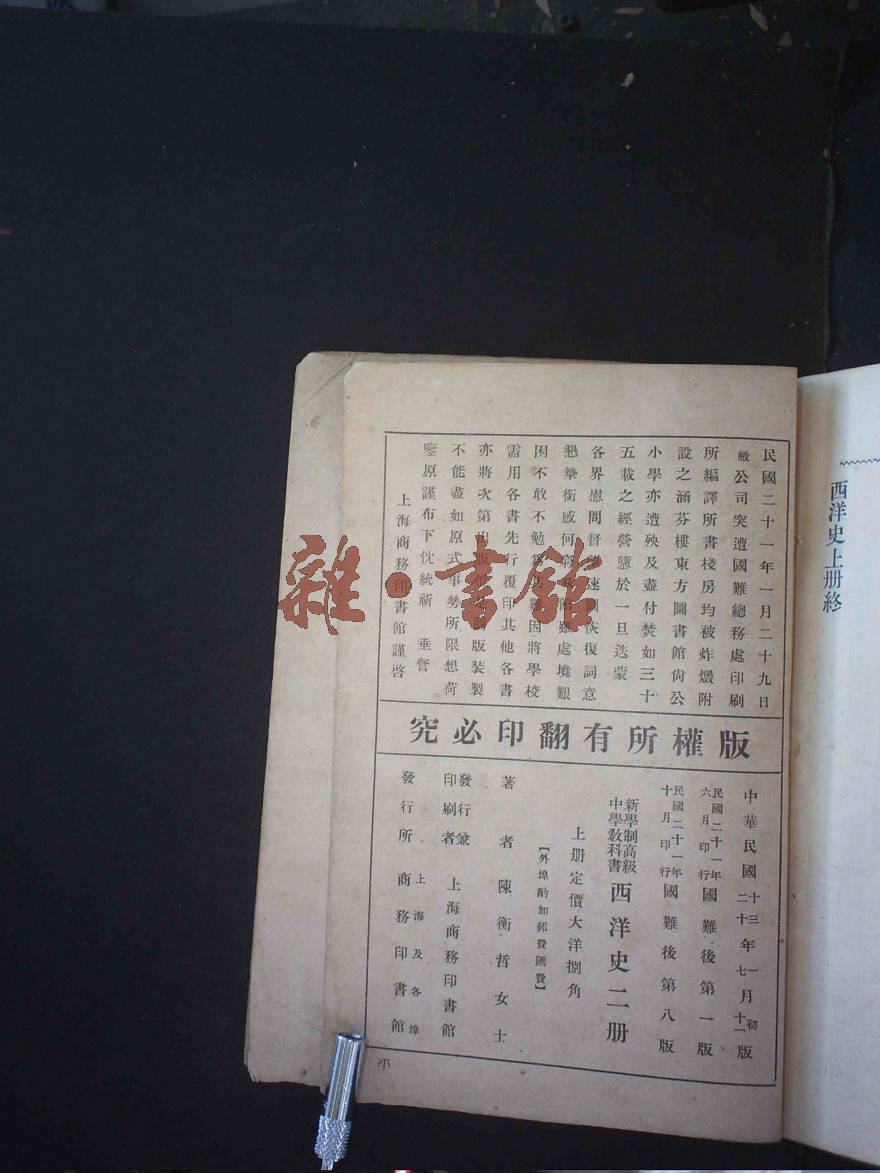 西洋史上册終
民國二十一年一月二十九日
敝公司突遭國難總務處印刷
所編譯所書棧房均被炸燬附
設之涵芬樓東方圖書館尙公
小學亦遭殃及盡付焚如三十
五載之經營隳於一旦迭蒙
各界慰問督望速圖恢復詞意
懇摯銜感何窮敝館雖處境艱
困不敢不勉爲其難因將學校
需用各書先行覆印其他各書
亦將次第出版惟是圖版裝製
不能盡如原式事勢所限想荷
鑒原謹布下忱統祈 垂詧
上海商務印書館謹啓
版權所有翻印必究
中華民國十三年一月初版
二十年七月十一版
民國二十一年六月印行 國難後第一版
民國二十一年十月印行 國難後第八版
新學制高級中學敎科書 西洋史二册
上册定價大洋捌角
【外埠酌加郵費匯費】
著者 陳衡哲女士
發行兼印刷者 上海商務印書館
發行所 上海及各埠 商務印書館
雜·書館